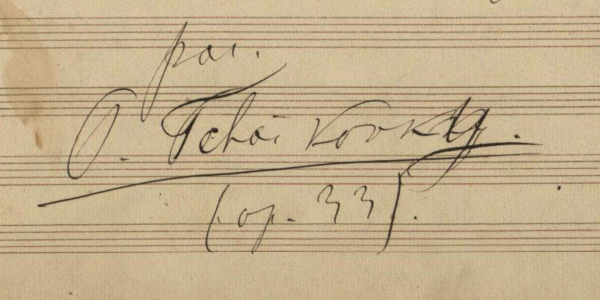 par.
P. Tchaïkovsky.
(op. 33).